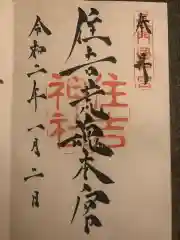 奉拝
住吉荒魂本宮
住吉
神社
令和二年一月二日